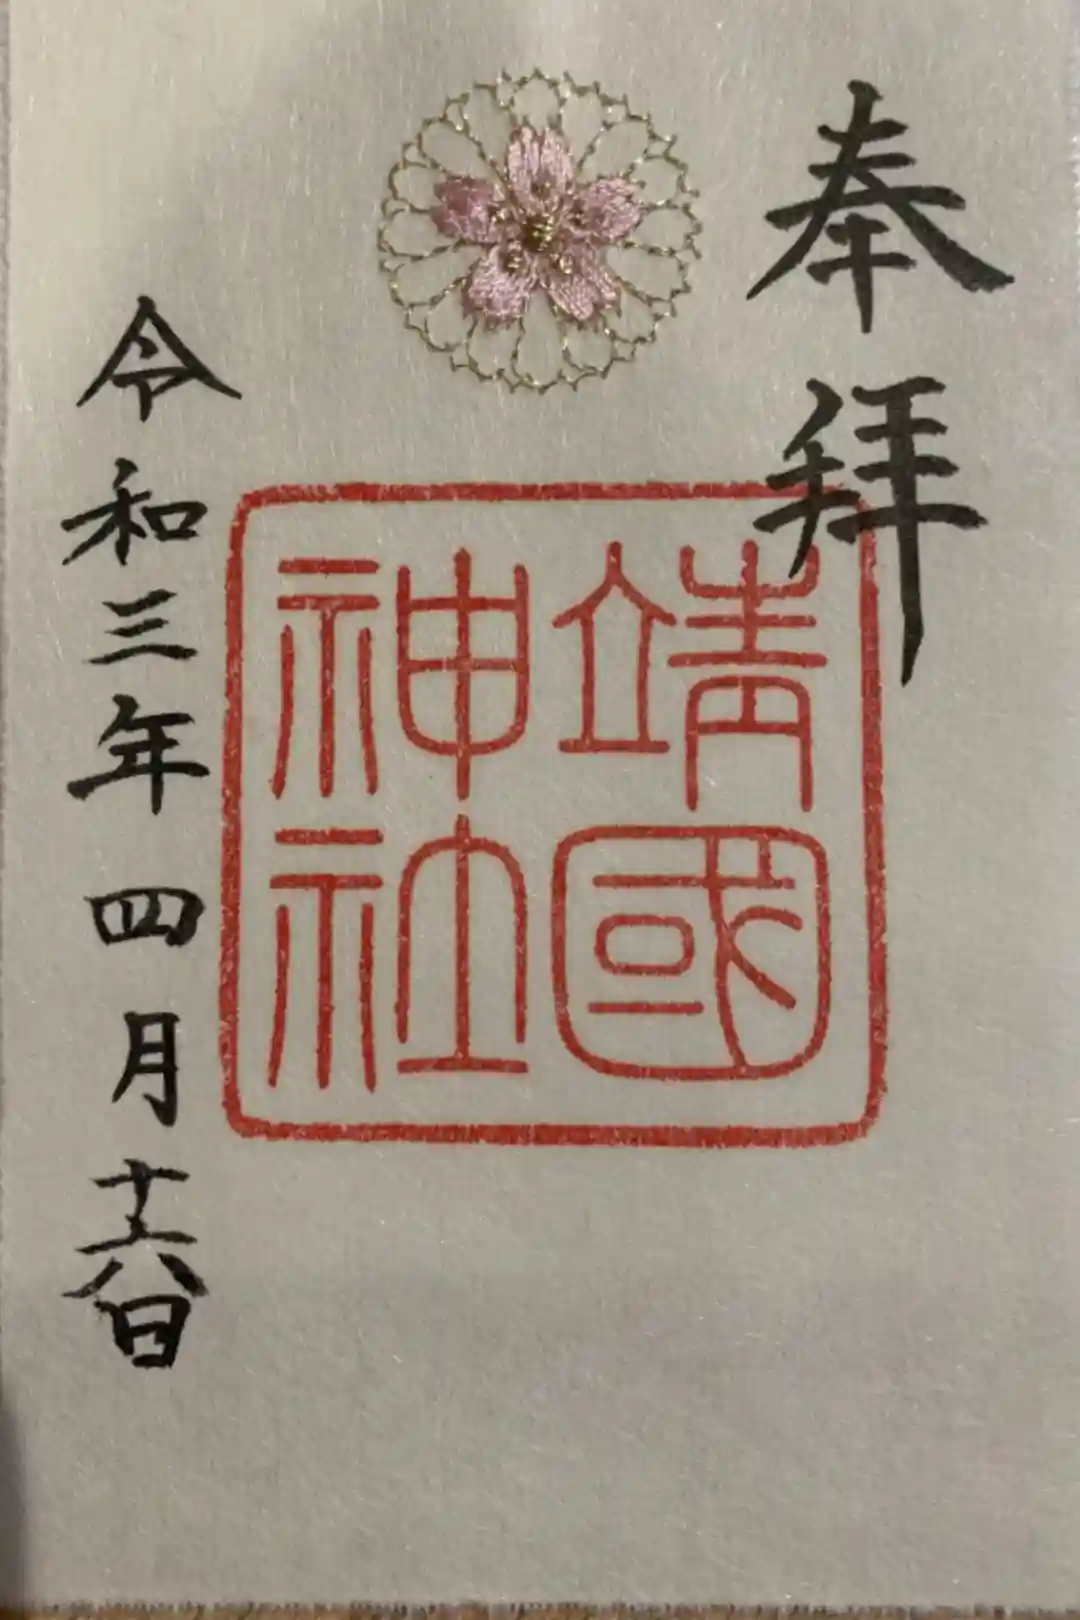 奉拝
靖國
神社
令和三年四月十六日